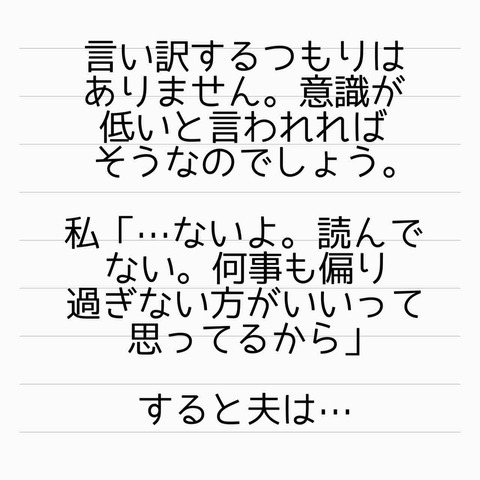 言い訳するつもりは
ありません。意識が
低いと言われれば
そうなのでしょう。
私「…ないよ。読んで
ない。何事も偏り
過ぎない方がいいって
思ってるから」
すると夫は…